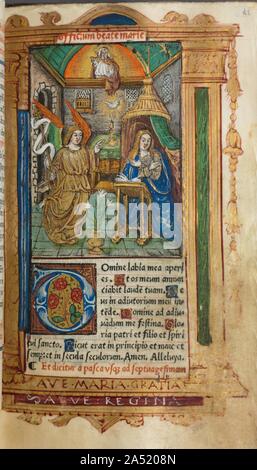 officium beate marie
Omine labia mea aperi
es. Et os meum annun
ciabit laudē tuam.
us in adiutorium meū in
tēde. Domine ad adiu
uādum me festina. Glo
ria patri et filio et spiri
tui sancto. Sicut erat in principio et nunc et
semper in secula seculorum. Amen. Alleluya.
Et dicitur a pasca usqз ad septuagesimam
AVE·MARIA·GRATIA
SALVE·REGINA
alamy
Image ID: 2A5208N
www.alamy.com